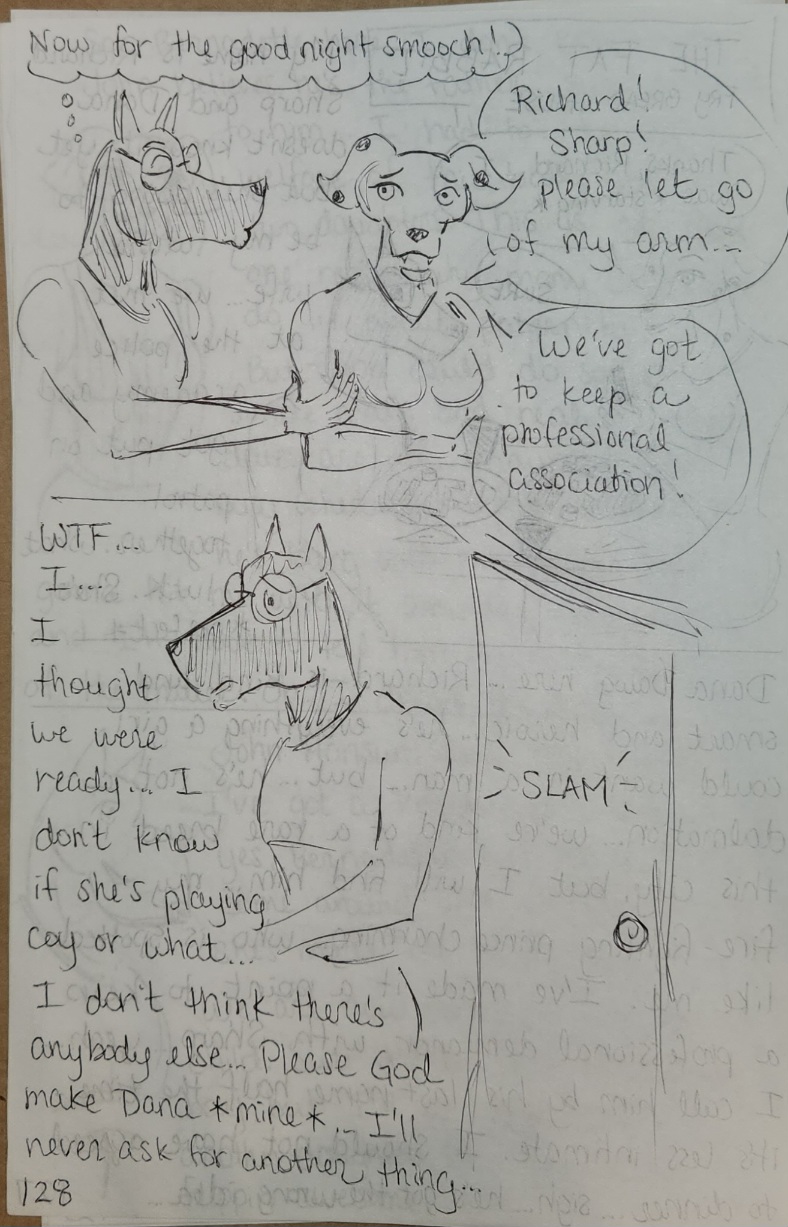 Now for the good night smooch!
Richard!
Sharp!
please let go
of my arm...
We've got
to keep a
professional
association!
WTF...
I...
I
thought
we were
ready... I
don't know
if she's playing
coy or what...
I don't think there's
anybody else... Please God
make Dana *mine*... I'll
never ask for another thing...
SLAM
128